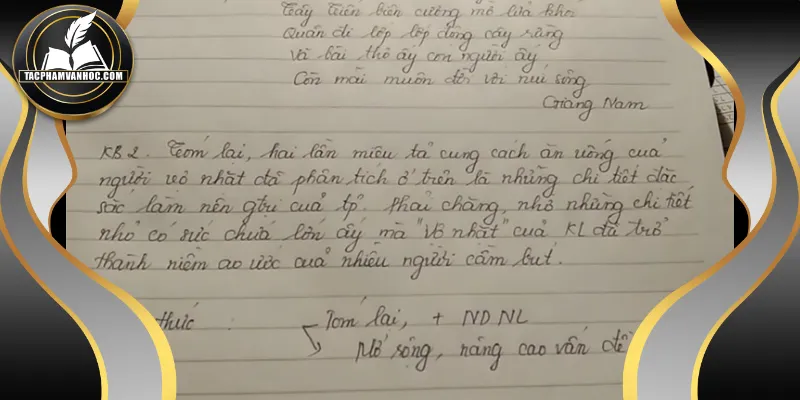 TACPHAMVANHOC.COM
Tây Tiến biên cương mờ lửa khói
Quân đi lớp lớp động cây rừng
Và bài thơ ấy con người ấy
Còn mãi muôn đời với núi sông
Giang Nam
KB 2. Tóm lại, hai lần miêu tả cung cách ăn uống của
người vợ nhặt đã phân tích ở trên là những chi tiết đặc
sắc làm nên gtrị của tp. Phải chăng, nhờ những chi tiết
nhỏ có sức chứa lớn ấy mà "Vợ nhặt" của KL đã trở
thành niềm ao ước của nhiều người cầm bút.
thức : Tóm lại, + ND NL
Mở rộng, nâng cao vấn đề